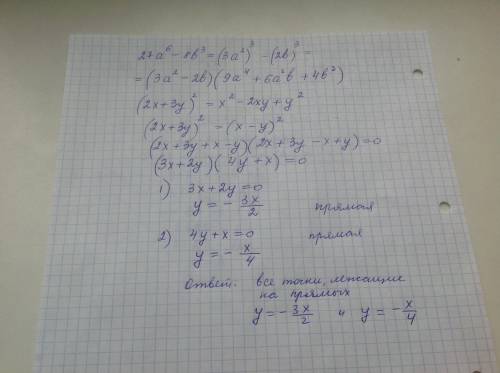 27a⁶ - 8b³ = (3a²)³ - (2b)³ =
= (3a² - 2b)(9a⁴ + 6a²b + 4b²)
(2x+3y)² = x² - 2xy + y²
(2x+3y)² = (x-y)²
(2x+3y+x-y)(2x+3y-x+y)=0
(3x+2y)(4y+x)=0
1) 3x+2y=0
y = - 3x/2 прямая
2) 4y+x=0 прямая
y = - x/4
Ответ: все точки, лежащие
на прямых
y = - 3x/2 и y = - x/4